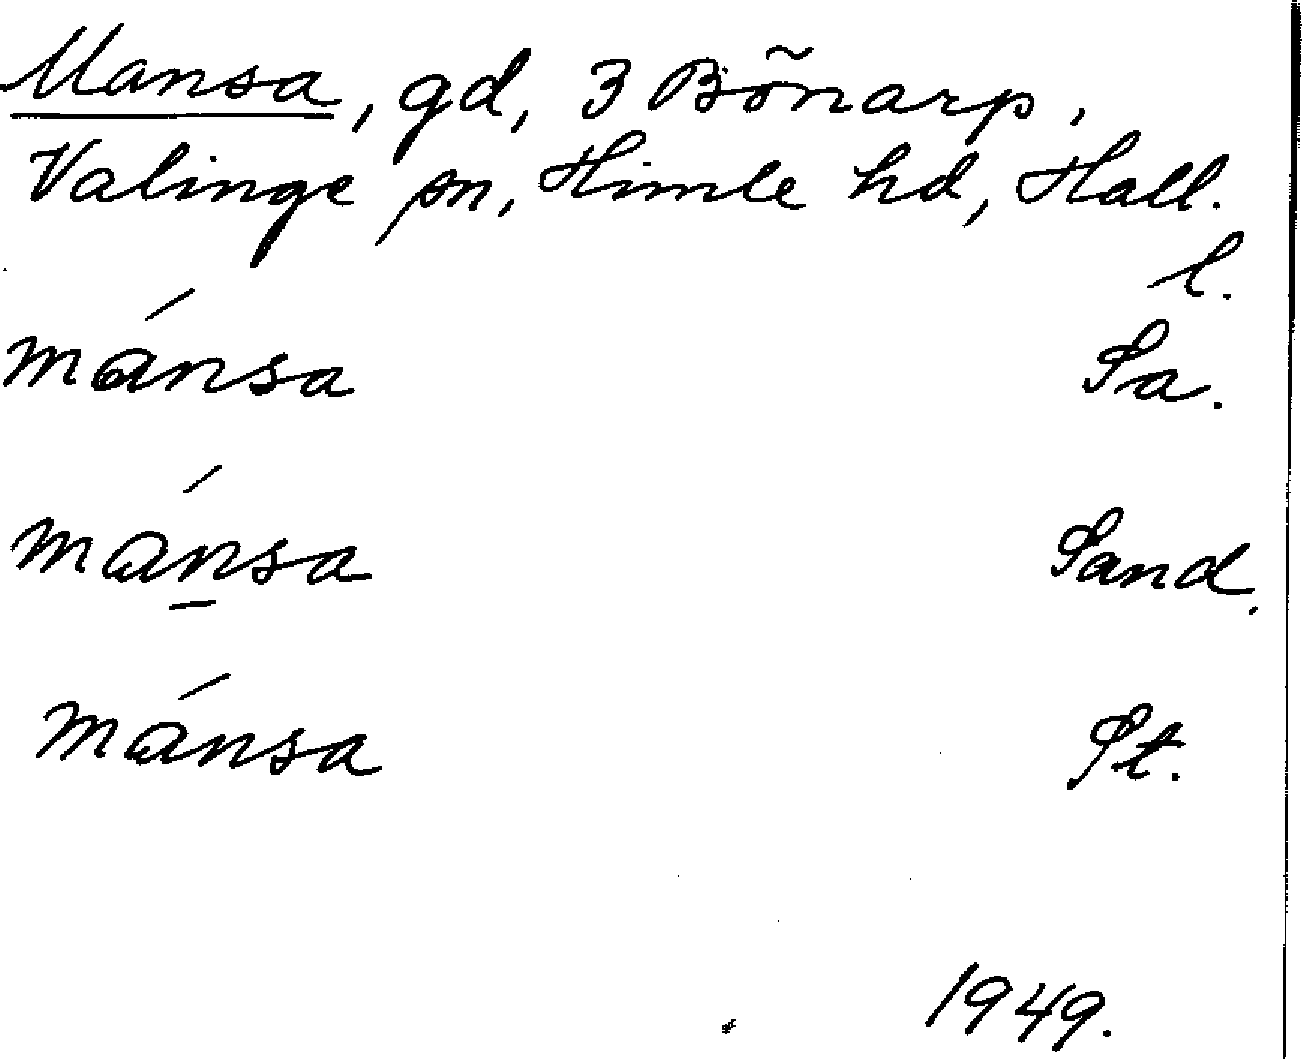 Mansa, gd, 3 Bõnarp,
Valinge sn, Himle hd, Hall.
l.
mánsa Sa.
mánsa Sand.
mánsa St.
1949.